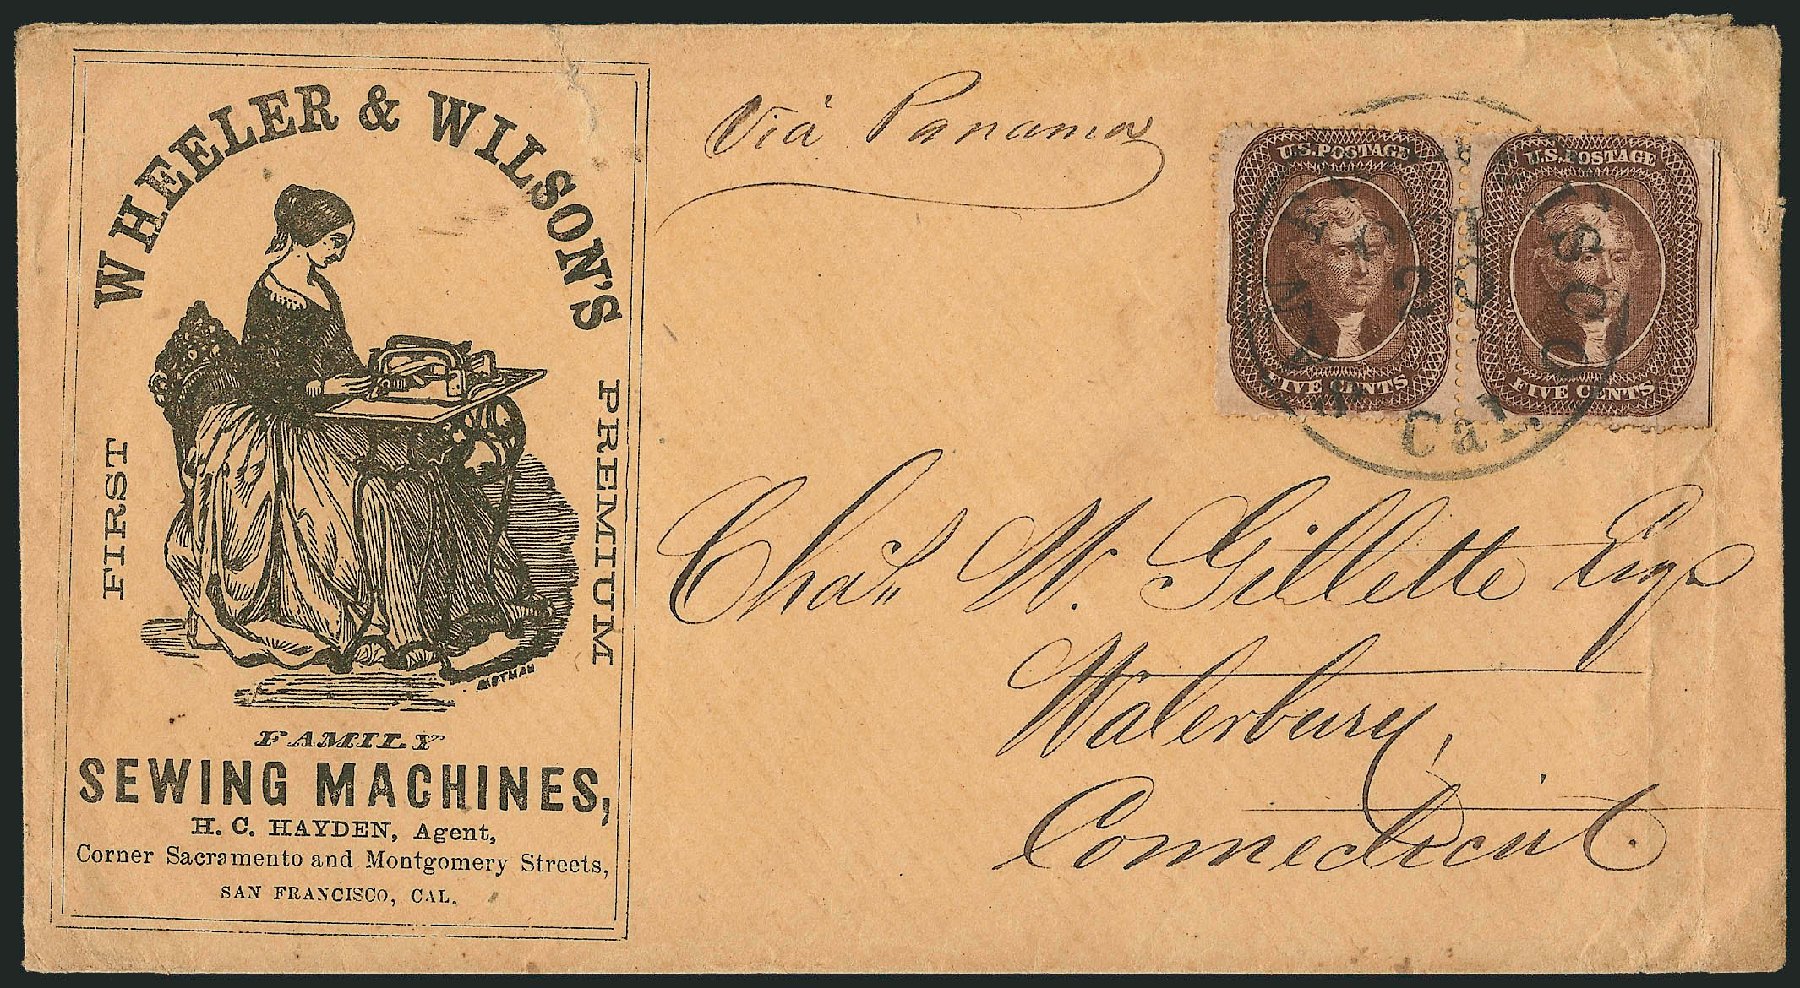 WHEELER & WILSON'S
FIRST PREMIUM
EASTMAN
FAMILY
SEWING MACHINES,
H. C. HAYDEN, Agent,
Corner Sacramento and Montgomery Streets,
SAN FRANCISCO, CAL.
Via Panama
U.S. POSTAGE
FIVE CENTS
U.S. POSTAGE
FIVE CENTS
SAN FRANCISCO
Cal.
Chas. W. Gillette Esq.
Waterbury,
Connecticut.